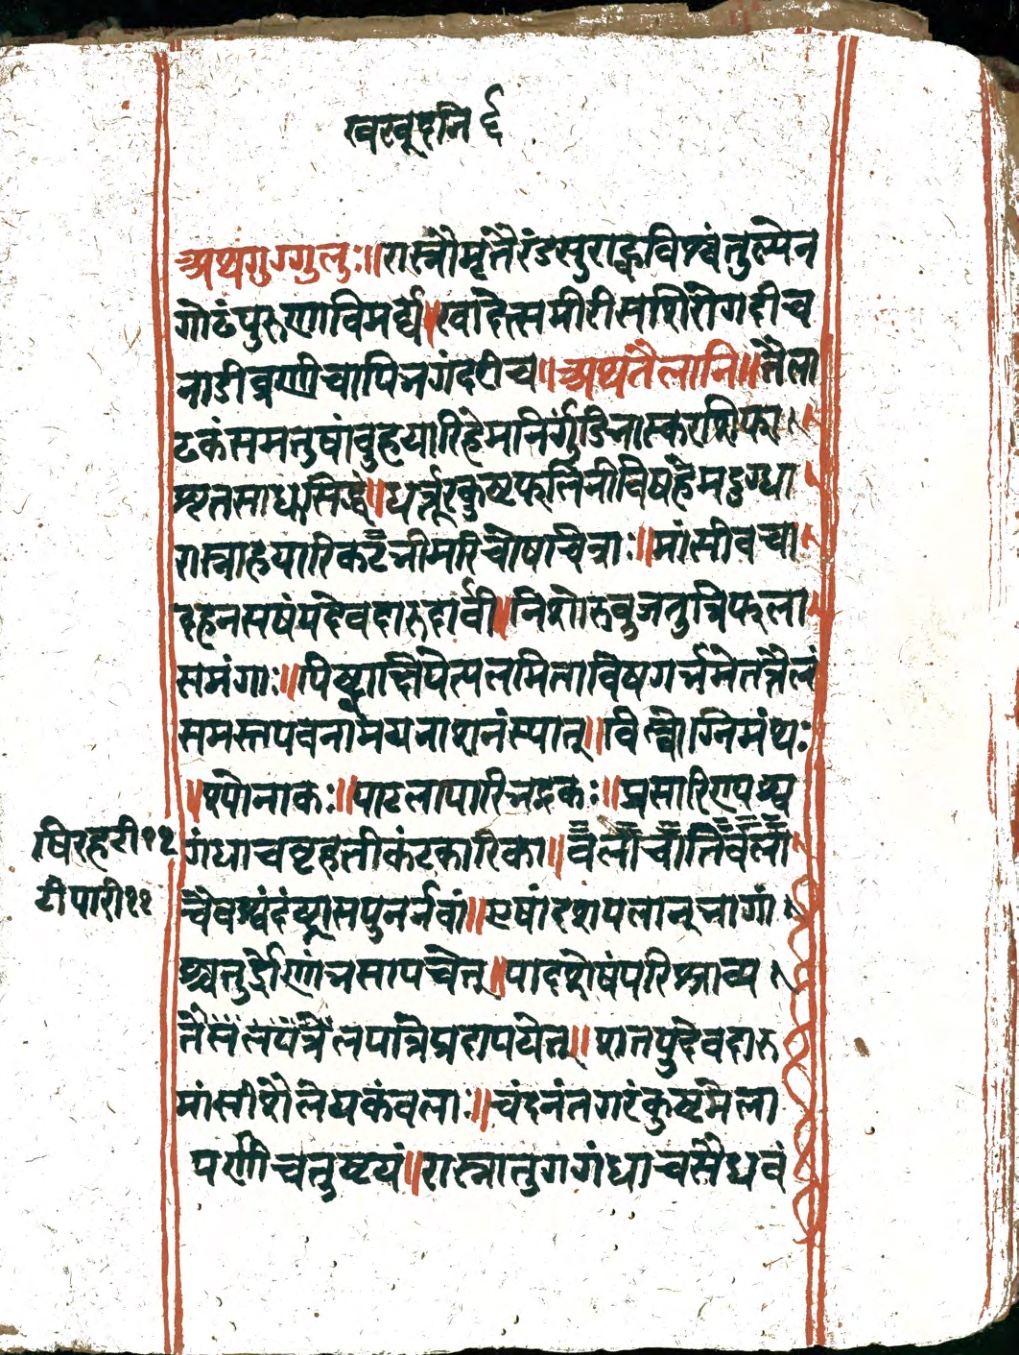 खरखूदनि ६
अथगुग्गुलुः॥रास्नौमृतैरंडसुराह्वविश्वंतुल्येन
गोढंपुरुणाविमर्द्य॥खादेत्समीरीसशिरोगदीच
नाडीव्रणीचापिभगंदरीच॥अथतैलानि॥तैला
ढकंसमतुषांबुहयारिहेमनिर्गुंडिभास्करशिफा
शृतसाधुसिद्धं॥धर्त्तूरकुष्टफलिनीविषहेमदुग्धा
रास्नाहयारिकटभीमरिचोषचित्राः॥मांसीवचा
दहनसर्षपदेवदारुदार्वी॥निशोरुवुजतुत्रिफला
समंगाः॥पिष्ट्वाक्षिपेत्पलमिताविषगर्भमेतत्तैलं
समस्तपवनामयनाशनंस्यात्॥विल्वोग्निमंथः
॥श्योनाकः॥पाटलापारिभद्रकः॥प्रसारिण्यश्व
गंधाचवृहतीकंटकारिका॥वलाचातिवला
षिरहरी११
चैवश्वंदंष्ट्रासपुनर्नवा॥एषांदशपलान्भागां
टीपारी११
श्चतुर्द्रोणेंभसापचेत्॥पादशेषंपरिश्राव्य
तैलपात्रंप्रदापयेत्॥शतपुदेवदारु
मांसीशैलेयकंवलाः॥चंदनंतगरंकुष्टमेला
पर्णीचतुष्टयं॥रास्नातुगगंधाचसैंधवं